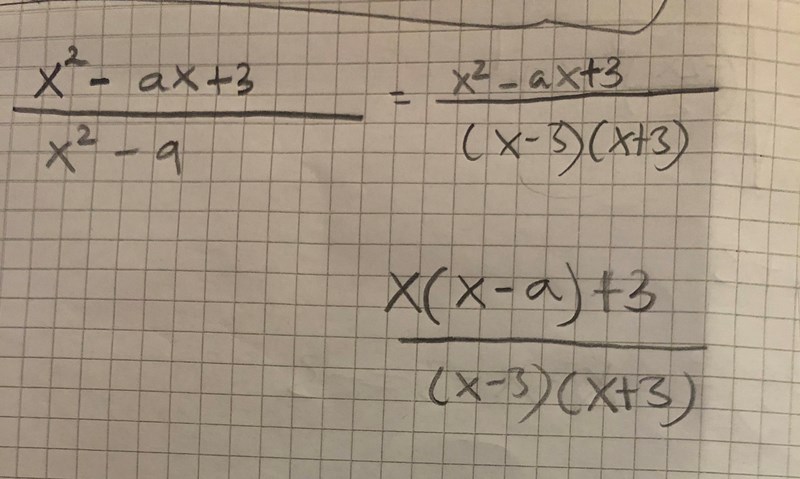 x² - ax+3 = x² - ax+3
x² - 9 (x-3)(x+3)
x(x-a)+3
(x-3)(x+3)